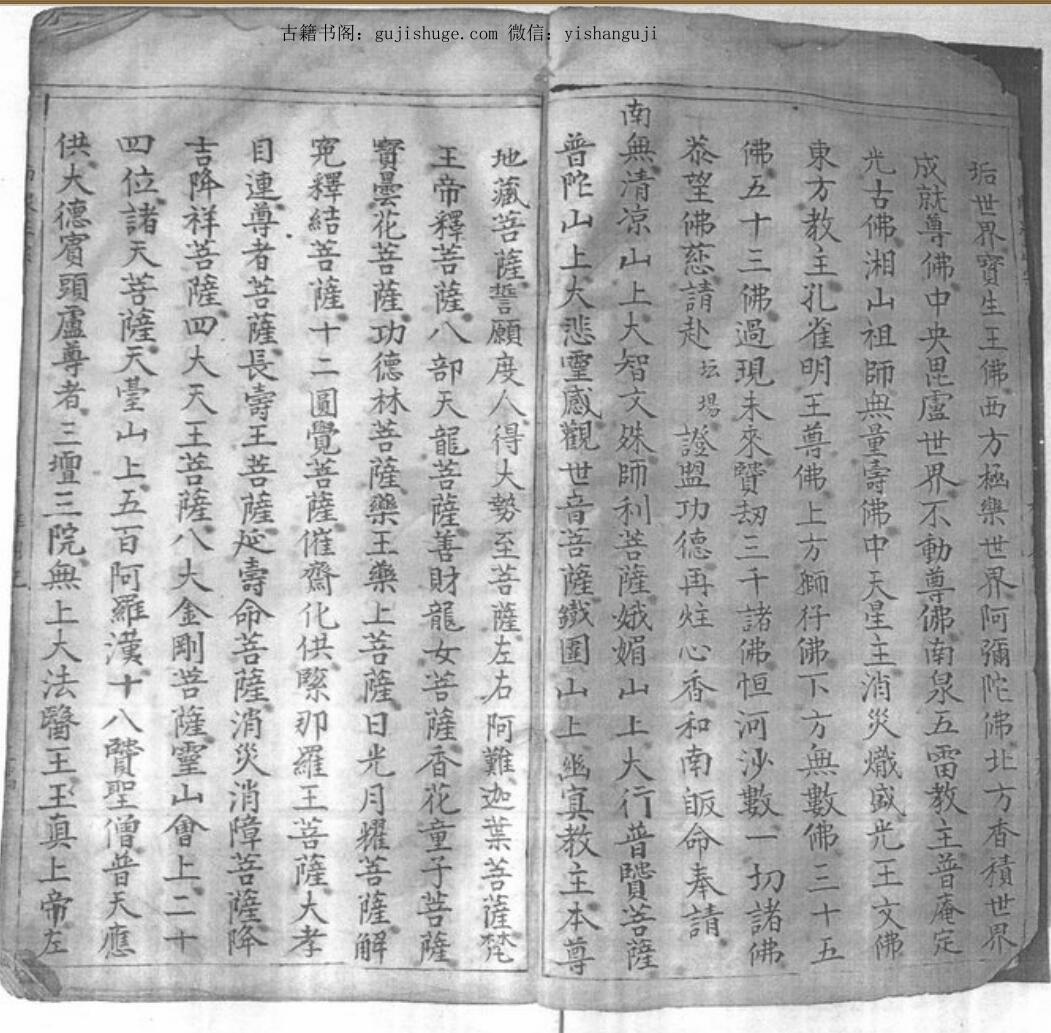 古籍书阁：gujishuge.com 微信：yishanguji
垢世界寳生王佛西方極樂世界阿彌陀佛北方香積世界
成就尊佛中央毘盧世界不動尊佛南泉五雷教主普庵定
光古佛湘山祖師無量壽佛中天星主消災熾盛光王文佛
東方教主孔雀明王尊佛上方獅仔佛下方無數佛三十五
佛五十三佛過現未來賢劫三千諸佛恒河沙數一切諸佛
恭望佛慈請赴坛場證盟功德再炷心香和南皈命奉請
南無清凉山上大智文殊師利菩薩娥媚山上大行普賢菩薩
普陀山上大悲靈感觀世音菩薩鐵圍山上幽冥教主本尊
地藏菩薩誓願度人得大勢至菩薩左右阿難迦葉菩薩梵
王帝釋菩薩八部天龍菩薩善財龍女菩薩香花童子菩薩
寳曇花菩薩功德林菩薩藥王藥上菩薩日光月耀菩薩解
冤釋結菩薩十二圓覺菩薩催齋化供緊那羅王菩薩大孝
目連尊者菩薩長壽王菩薩延壽命菩薩消災消障菩薩降
吉降祥菩薩四大天王菩薩八大金剛菩薩靈山會上二十
四位諸天菩薩天臺山上五百阿羅漢十八賢聖僧普天應
供大德賓頭盧尊者三壇三院無上大法醫王王真上帝左